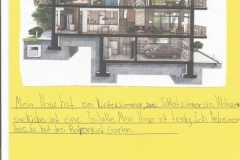 Mein Haus hat ein Kinderzimmer, zwei Schlafzimmer, ein Wohnzimmer
eine Küche und eine Toilette. Mein Haus ist farbig. Ich liebe mein
Haus. Es hat drei Balkon und Garten.